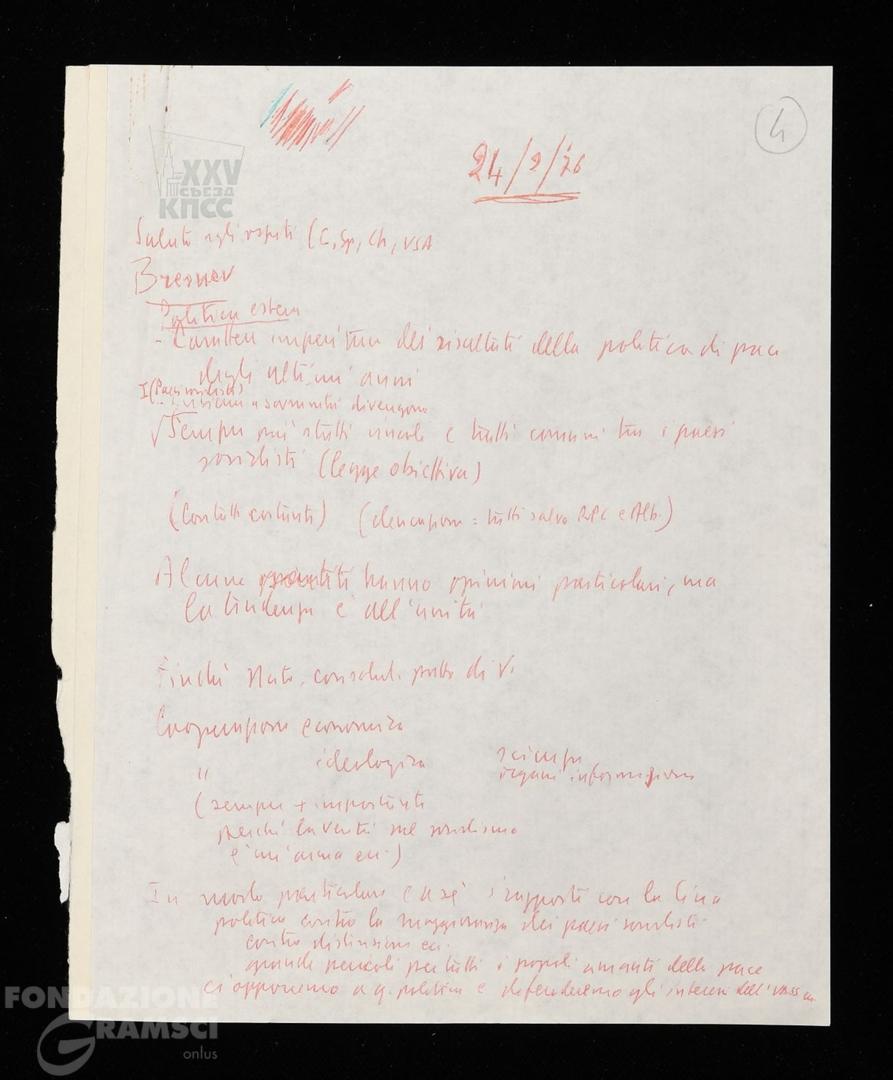 4
24/2/76
XXV
СЪЕЗД
КПСС
Saluto agli ospiti (C, Sp, Ch, USA
Bresnev
Politica estera
- Carattere imperituro dei risultati della politica di pace
degli ultimi anni
I (Paesi socialisti)
divengono
Sempre più stretti vincoli e tratti comuni tra i paesi
socialisti (legge obiettiva)
(Contatti costanti) (elencazione = tutti salvo RPC e Alb.)
Alcuni partiti hanno opinioni particolari, ma
la tendenza è all'unità
Finché Nato, consolid. patto di V.
Cooperazione economica
" ideologica scienza
organi informazione
(sempre + importante
perché la verità sul socialismo
è un'arma ecc.)
In modo particolare Cina i rapporti con la Cina
politica contro la maggioranza dei paesi socialisti
contro distensione ecc.
grande pericolo per tutti i popoli amanti della pace
ci opponiamo a q. politica e difenderemo gli interessi dell'URSS
FONDAZIONE
GRAMSCI
onlus